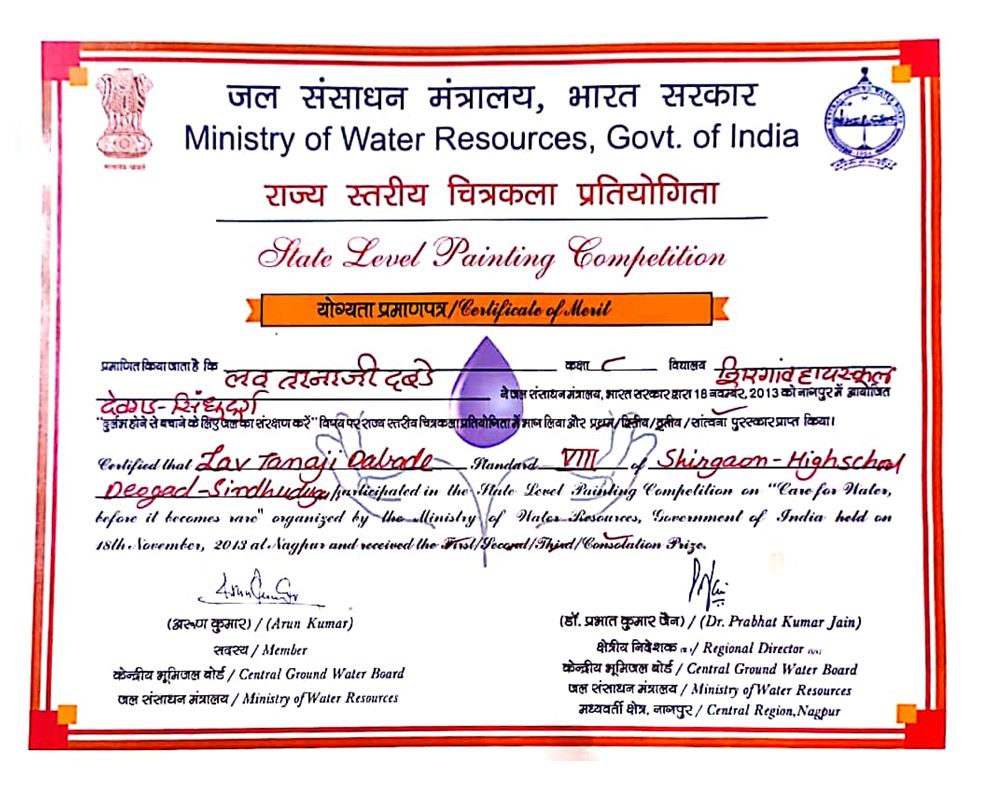 जल संसाधन मंत्रालय, भारत सरकार
Ministry of Water Resources, Govt. of India
राज्य स्तरीय चित्रकला प्रतियोगिता
State Level Painting Competition
योग्यता प्रमाणपत्र/Certificate of Merit
प्रमाणित किया जाता है कि लव तानाजी दबडे कक्षा ८ विद्यालय शिरगांव हायस्कूल
देवगड-सिंधुदुर्ग ने जल संसाधन मंत्रालय, भारत सरकार द्वारा 18 नवम्बर, 2013 को नागपुर में आयोजित
"दुर्लभ होने से बचाने के लिए जल का संरक्षण करें" विषय पर राज्य स्तरीय चित्रकला प्रतियोगिता में भाग लिया और प्रथम/द्वितीय/तृतीय/सांत्वना पुरस्कार प्राप्त किया।
Certified that Lav Tanaji Dabade Standard VIII of Shirgaon-Highschool
Deogad-Sindhudurg participated in the State Level Painting Competition on "Care for Water,
before it becomes rare" organized by the Ministry of Water Resources, Government of India held on
18th November, 2013 at Nagpur and received the First/Second/Third/Consolation Prize.
(अरूण कुमार) / (Arun Kumar)
सदस्य / Member
केन्द्रीय भूमिजल बोर्ड / Central Ground Water Board
जल संसाधन मंत्रालय / Ministry of Water Resources
(डॉ. प्रभात कुमार जैन) / (Dr. Prabhat Kumar Jain)
क्षेत्रीय निदेशक / Regional Director
केन्द्रीय भूमिजल बोर्ड / Central Ground Water Board
जल संसाधन मंत्रालय / Ministry of Water Resources
मध्यवर्ती क्षेत्र, नागपुर / Central Region, Nagpur